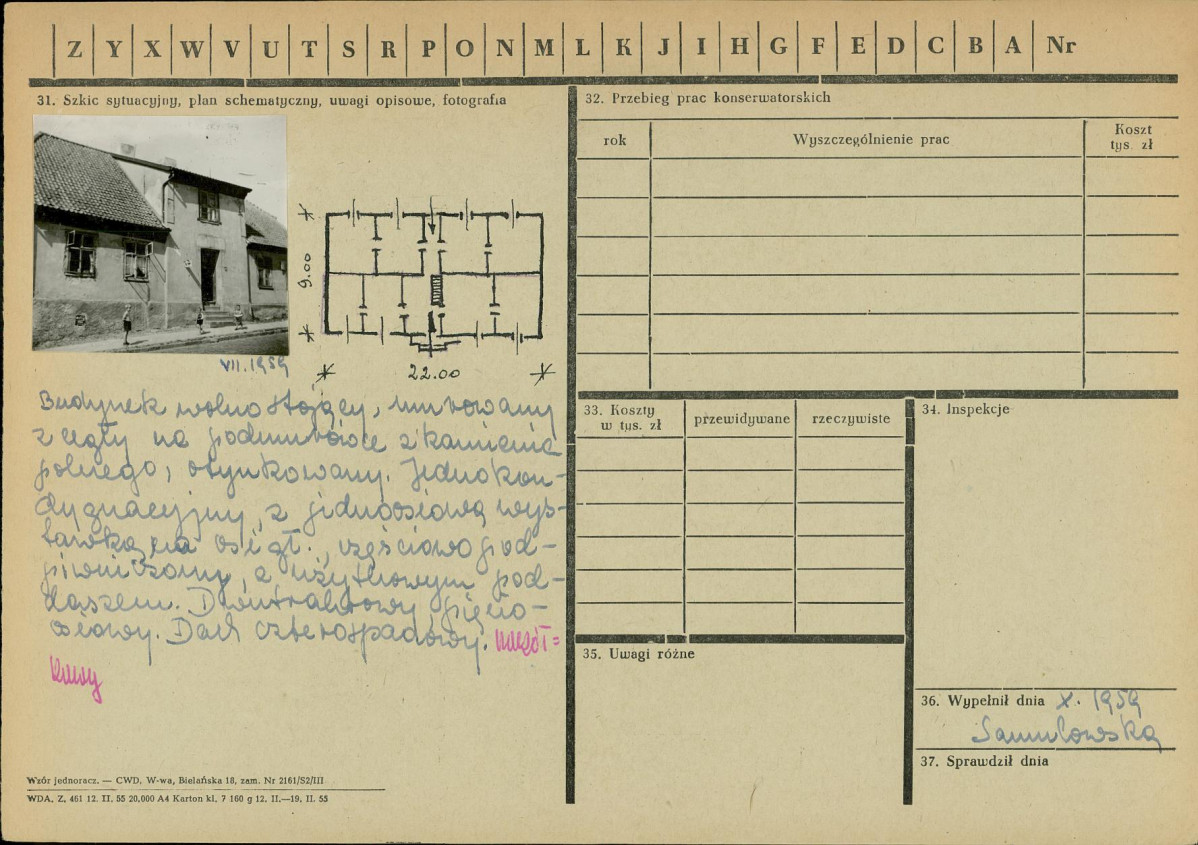 Z Y X W V U T S R P O N M L K J I H G F E D C B A Nr
31. Szkic sytuacyjny, plan schematyczny, uwagi opisowe, fotografia
VII. 1959
9.00
22.00
Budynek wolno stojący, murowany
z cegły na podmurówce z kamienia
polnego, otynkowany. Jednokon-
dygnacyjny, z jednoosiową wys-
tawką na osi gł., częściowo pod-
piwniczony, z użytkowym pod-
daszem. Dwutraktowy pięcio-
osiowy. Dach czterospadowy.
Wzór jednoracz. — CWD, W-wa, Bielańska 18, zam. Nr 2161/S2/III
WDA. Z. 461 12. II. 55 20,000 A4 Karton kl. 7 160 g 12. II.—19. II. 55
32. Przebieg prac konserwatorskich
rok
Wyszczególnienie prac
Koszt
tys. zł
33. Koszty
w tys. zł
przewidywane
rzeczywiste
34. Inspekcje
35. Uwagi różne
36. Wypełnił dnia X. 1959
Samulowska
37. Sprawdził dnia